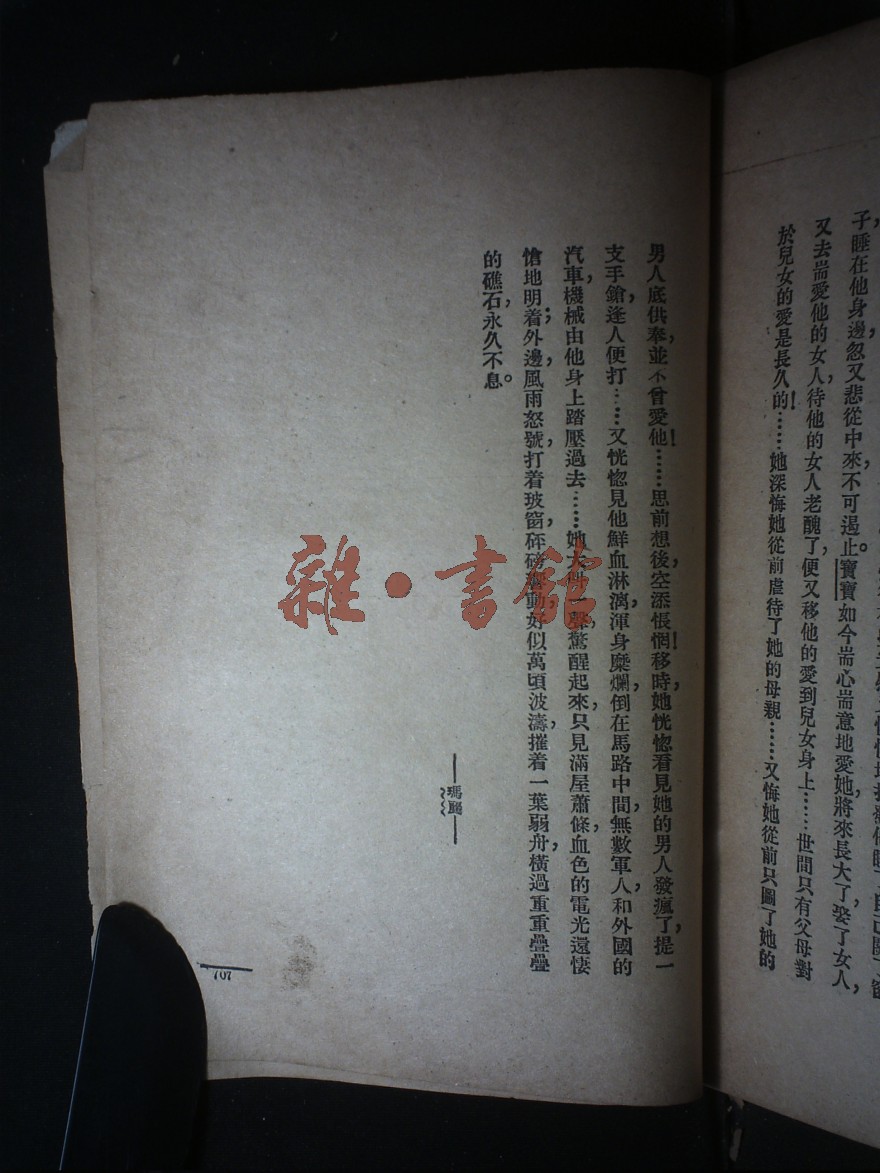 子，睡在他身邊忽又悲從中來，不可遏止。寶寶如今耑心耑意地愛她，將來長大了，娶了女人，
又去耑愛他的女人，待他的女人老醜了，便又移他的愛到兒女身上……世間只有父母對
於兒女的愛是長久的！……她深悔她從前虐待了她的母親……又悔她從前只圖了她的
男人底供奉，並不曾愛他！……思前想後，空添悵惘！移時，她恍惚看見她的男人發瘋了，提一
支手鎗，逢人便打……又恍惚見他鮮血淋漓，渾身糜爛，倒在馬路中間，無數軍人和外國的
汽車，機械由他身上踏壓過去……她大叫一聲，驚醒起來，只見滿屋蕭條，血色的電光還悽
愴地明着；外邊風雨怒號，打着玻窗，砰磅動，好似萬頃波濤，摧着一葉弱舟，橫過重重疊疊
的礁石，永久不息。
——瑪——
707
雜·書館